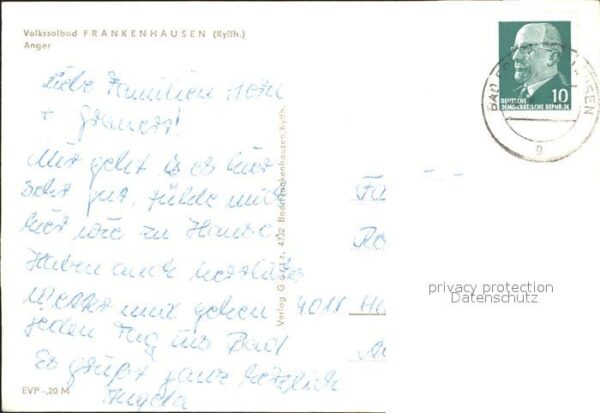 Volkssolbad FRANKENHAUSEN (Kyffh.)
Anger
Liebe Familien Horn
+
Mir geht es hier
sehr gut, fühle mich
hier wie zu Hause
Haben auch herrliches
Wetter und gehen
jeden Tag ins Bad
Es grüßt ganz herzlich
Angela
EVP -,20 M
Verlag G. 4732 Bad Frankenhausen/Kyffh.
10
DEUTSCHE
DEMOKRATISCHE REPUBLIK
BAD HAUSEN
g
Fa
4011
privacy protection
Datenschutz